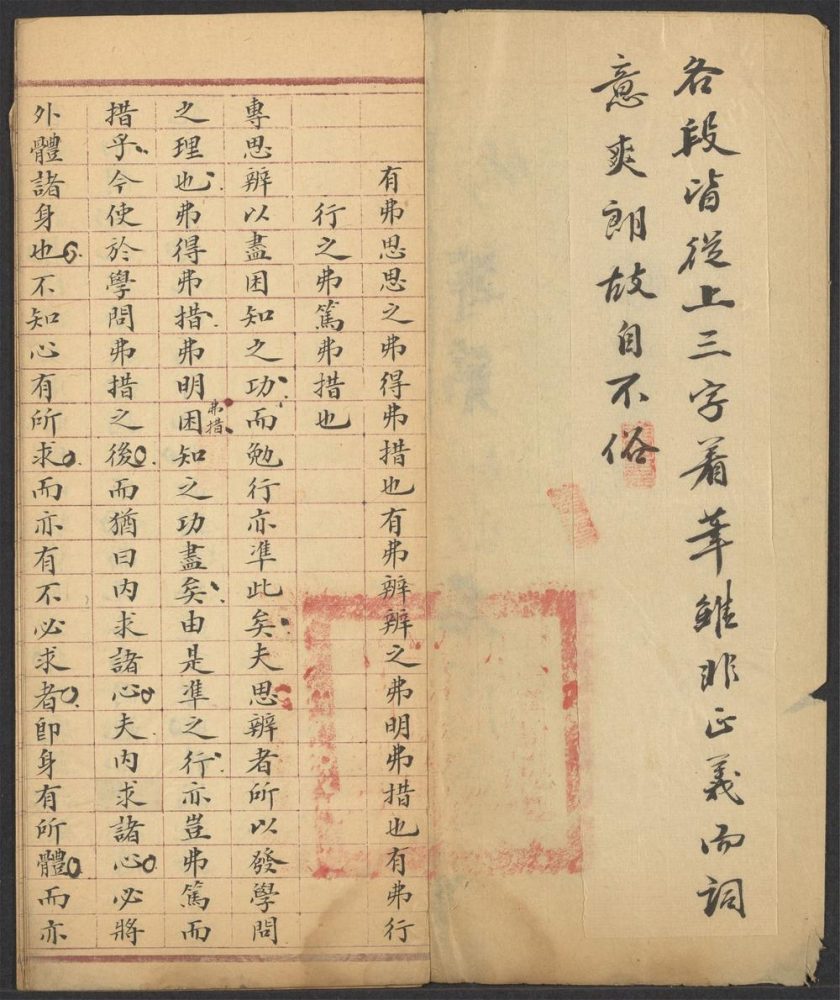 各段皆從上三字着筆雖非正義而詞
意爽朗故自不俗
有弗思思之弗得弗措也有弗辨辨之弗明弗措也有弗行
行之弗篤弗措也
專思辨以盡困知之功而勉行亦準此矣夫思辨者所以發學問
之理也弗得弗措弗明弗措困知之功盡矣由是準之行亦豈弗篤而
措乎今使於學問弗措之後而猶曰內求諸心夫內求諸心必將
外體諸身也不知心有所求而亦有不必求者即身有所體而亦